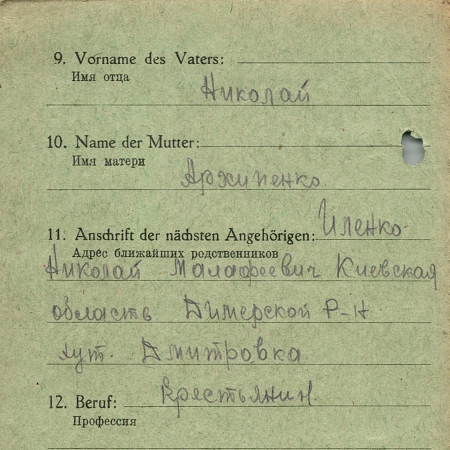 9. Vorname des Vaters:
Имя отца
Николай
10. Name der Mutter:
Имя матери
Архипенко.
11. Anschrift der nächsten Angehörigen: Иленко
Адрес ближайших родственников
Николай Малафеевич Киевская
область Димерской Р-Н
хут. Дмитровка
12. Beruf: Крестьянин.
Профессия